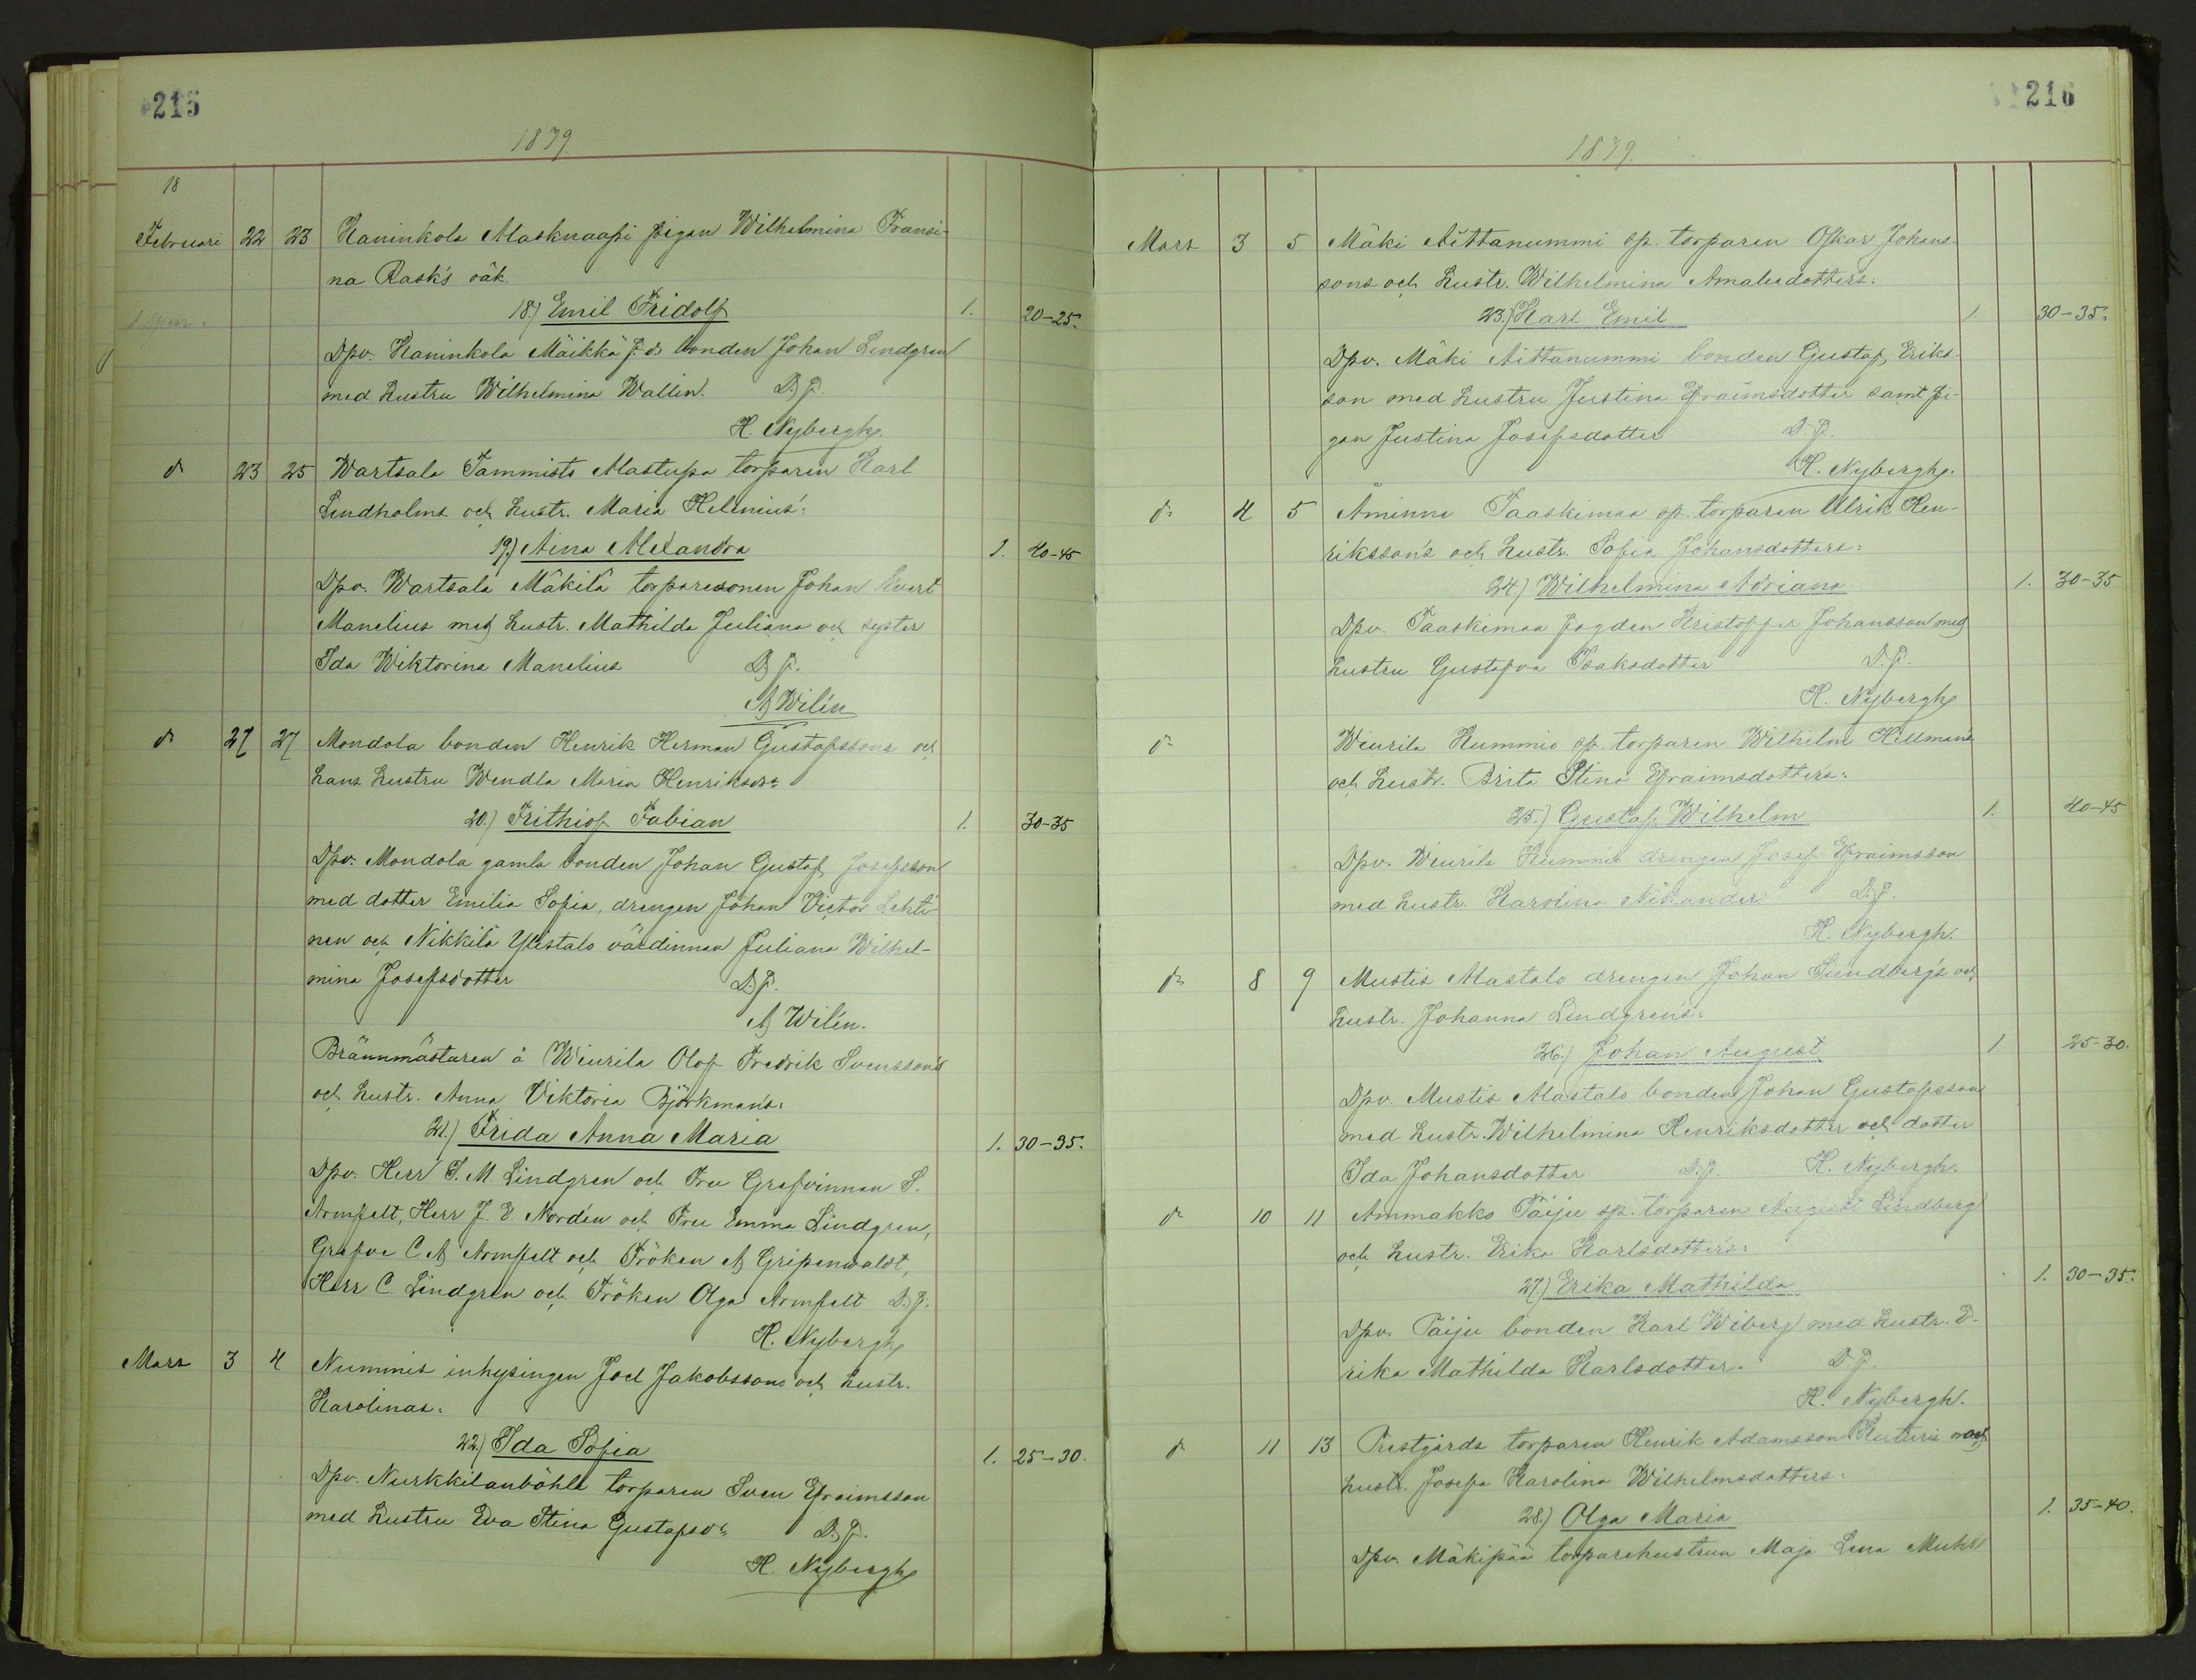 215
1879
18
Februari 22 23 Kaninkola Alasknaapi pigan Wilhelmina Fransi-
na Rask's oäk.
18.) Emil Fridolf 1. 20-25.
Dpv. Kaninkola Mäikkä bonden Johan Lindgren
med hustru Wilhelmina Wallin. D. P.
H. Nybergh
d:o 23 25 Wartsala Tammisto Alastupa torparen Karl
Lindholms och hustr. Maria Helenius':
19.) Aina Alexandra 1. 40-45
Dpv. Wartsala Mäkilä torparesonen Johan Evert
Manelius med hustr. Mathilda Juliana och syster
Ida Wiktorina Manelius D. P.
A Wilén
d:o 27 27 Mondola bonden Henrik Herman Gustafssons och
hans hustru Wendla Maria Henriksdr:
20.) Frithiof Fabian 1. 30-35
Dpv. Mondola gamla bonden Johan Gustaf Josefsson
med dotter Emilia Sofia, drengen Johan Victor Lehti-
nen och Nikkilä Ylistalo värdinnan Juliana Wilhel-
mina Josefsdotter D. P.
A Wilén.
Brännmästaren å Wiurila Olof Fredrik Svensson's
och hustr. Anna Viktoria Björkman's:
21.) Frida Anna Maria 1. 30-35.
Dpv. Herr F. M. Lindgren och Fru Grefvinnan S.
Armfelt, Herr J. E. Nordén och Fru Emma Lindgren,
Grefve C. A Armfelt och Fröken A Gripenwaldt,
Herr C. Lindgren och Fröken Olga Armfelt D. P.
H. Nybergh
Mars 3 4 Nummis inhysingen Joel Jakobssons och hustr.
Karolinas:
22.) Ida Sofia 1. 25-30.
Dpv. Nurkkilanböhle torparen Sven Efraimsson
med hustru Eva Stina Gustafsdr. D. P.
H. Nybergh
216
1879
Mars 3 5 Mäki Aittanummi sp. torparen Oskar Johans-
sons och hustr. Wilhelmina Amaliedotters:
23.) Karl Emil 1. 30-35.
Dpv. Mäki Aittanummi bonden Gustaf Eriks-
son med hustru Justina Efraimsdotter samt pi-
gan Justina Josefsdotter D. P.
H. Nybergh.
d:o 4 5 Åminne Paaskimaa sp. torparen Ulrik Hen-
riksson's och hustr. Sofia Johansdotters:
24.) Wilhelmina Adriana 1. 30-35
Dpv. Paaskimaa fogden Kristoffer Johansson med
hustru Gustafva Isaksdotter D. P.
H. Nybergh
d:o Wiurila Hummis sp. torparen Wilhelm Hellmans
och hustr. Brita Stina Efraimsdotters:
25.) Gustaf Wilhelm 1. 40-45
Dpv. Wiurila Hummis drengen Josef Efraimsson
med hustr. Karolina Nikander D. P.
H. Nybergh.
d:o 8 9 Mustis Alastalo drengen Johan Sundberg's och
hustr. Johanna Lindgren's:
26.) Johan August 1. 25-30.
Dpv. Mustis Alastalo bonden Johan Gustafsson
med hustr. Wilhelmina Henriksdotter och dotter
Ida Johansdotter D. P. H. Nybergh.
d:o 10 11 Ammakko Päiju sp. torparen August Lindberg
och hustr. Erika Karlsdotters:
27.) Erika Mathilda 1. 30-35.
Dpv. Päiju bonden Karl Wiberg med hustr. E-
rika Mathilda Karlsdotter. D. P.
H. Nybergh.
d:o 11 13 Prestgårds torparen Henrik Adamsson med
hustr. Josefa Karolina Wilhelmsdotters:
28.) Olga Maria 1. 35-40.
Dpv. Mäkipää torparehustrun Maja Lena Muhr